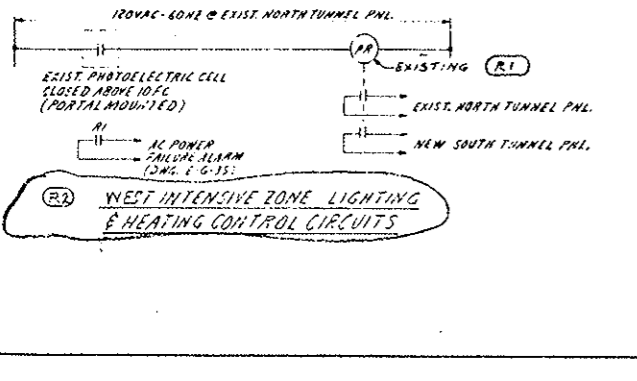 120VAC-60HZ @ EXIST. NORTH TUNNEL PNL.
PR
EXISTING R1
EXIST. PHOTOELECTRIC CELL
CLOSED ABOVE 10FC
(PORTAL MOUNTED)
EXIST. NORTH TUNNEL PNL.
R1
AC POWER
FAILURE ALARM
(DWG. E-G-35)
NEW SOUTH TUNNEL PNL.
R2 WEST INTENSIVE ZONE LIGHTING
& HEATING CONTROL CIRCUITS